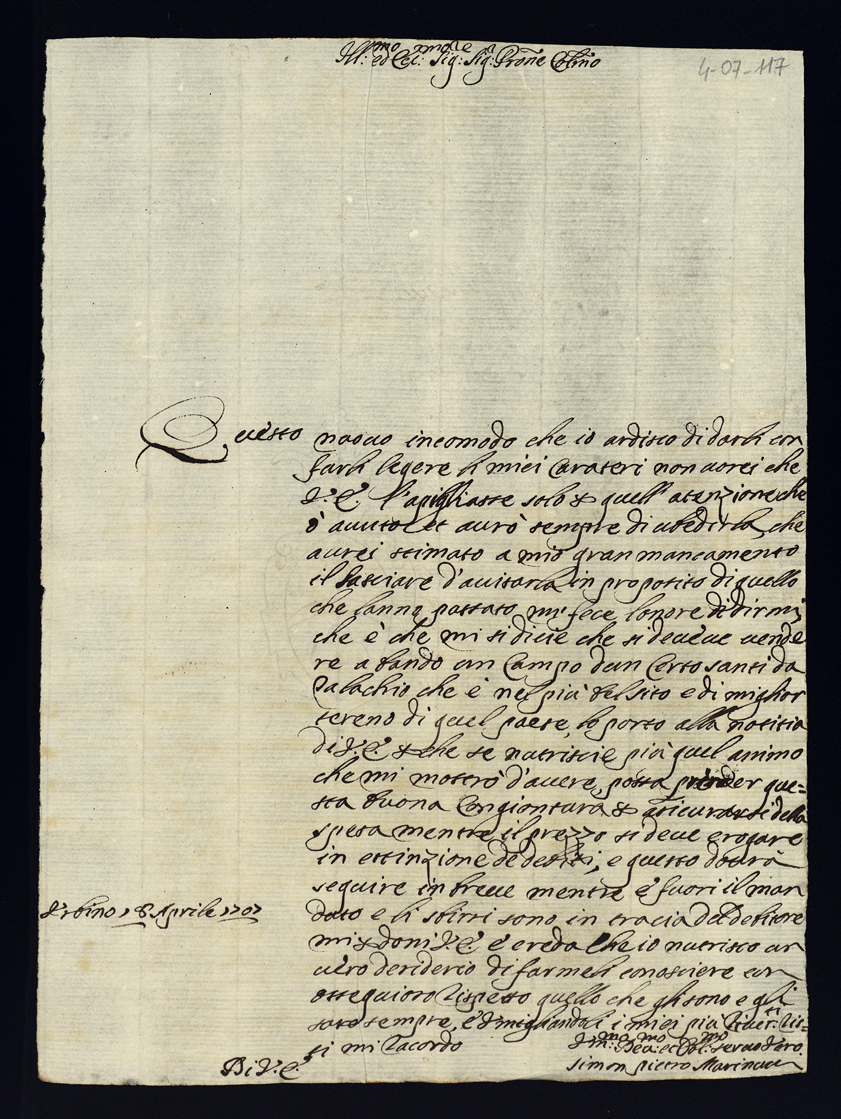 Ill:mo ed Ecc: Sig: Sig: Prone Colmo
4-07-117
Questo nuouo incomodo che io ardisco di darli con
farli legere li miei Carateri non uorei che
V.E. l'apigliasse solo & quell'atenzione che
ò auuto et aurò sempre di ubedirla che
aurei stimato a mio gran mancamento
il lasciare d'auisarla in proposito di quello
che lanno passato mi fece lonore di dirmi
che è che mi si dicie che si deueue uende
re a bando un Campo dun Certo santi da
Palachio che è nel più bel sito e di miglior
tereno di quel paese, lo porto alla notitia
di V.E. & che se nutriscie più quel animo
che mi mostrò d'auere, possa prender que=
sta buona Congiontura & asicurarsi della
spesa mentre il prezzo si deue erogare
in estinzione de debiti, e questo dourà
seguire in breue mentre è fuori il man
Vrbino 18 Aprile 1707
dato e li sbirri sono in tracia del debitore
mi &doni V.E. e creda che io nutrisco un
uero desiderio di farmeli conosciere con
ossequioso Rispetto quello che gli sono e gli
saro sempre, e &migliandoli i miei più Riuer:ti Ris=
ti mi Racordo
Di V.E.
V:mo Deu:mo et Obl:mo seruo uero
Simon pietro Marinucci